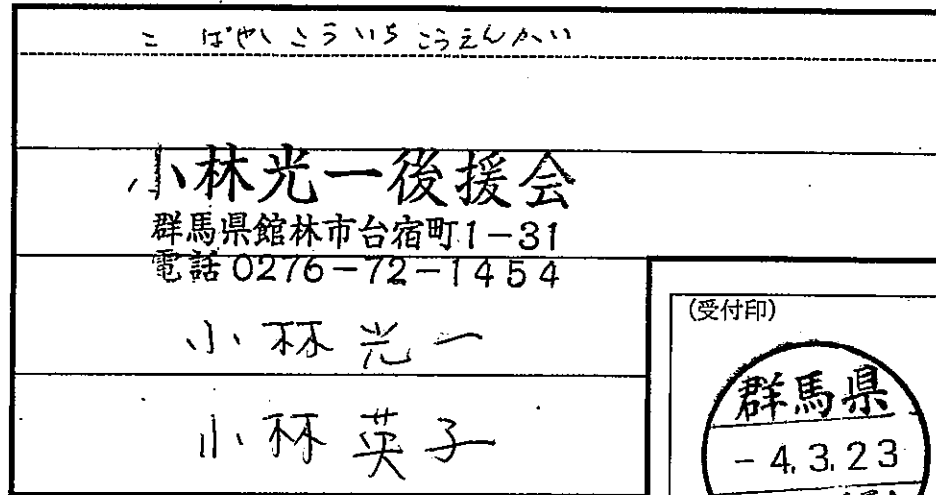 こばやしこういちこうえんかい
小林光一後援会
群馬県館林市台宿町1-31
電話0276-72-1454
小林光一
小林英子
(受付印)
群馬県
-4.3.23